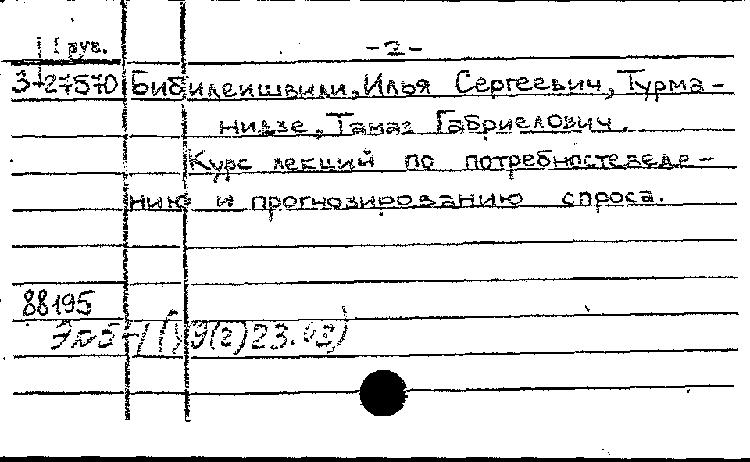 1 груз. -2-
3-27570 Бибилеишвили, Илья Сергеевич, Турма-
нидзе, Тамаз Габриелович.
Курс лекций по потребностеведе-
нию и прогнозированию спроса.
88195